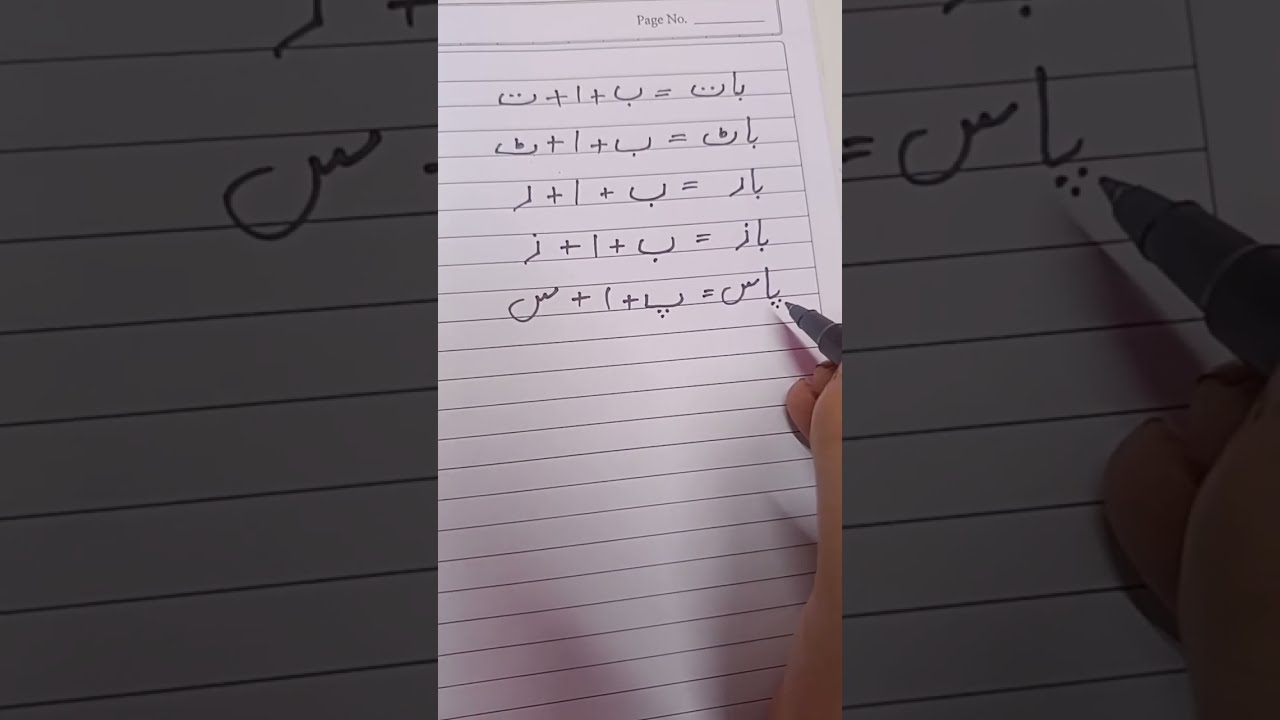 Page No.
بات = ب + ا + ت
باٹ = ب + ا + ٹ
بار = ب + ا + ر
باز = ب + ا + ز
پاس = پ + ا + س